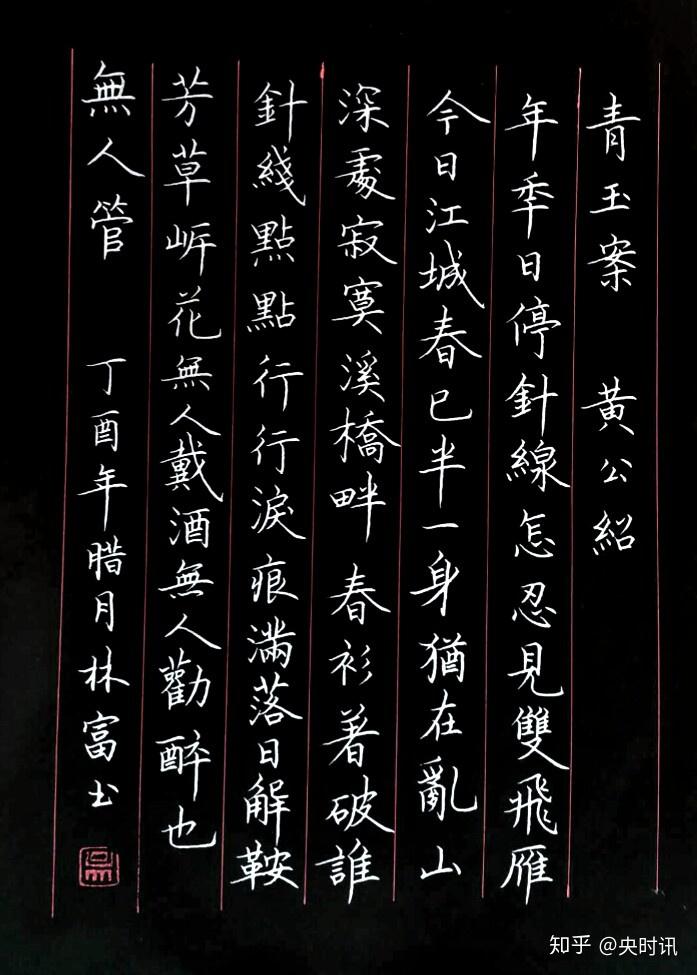 青玉案 黄公紹
年秊日停針線怎忍見雙飛雁
今日江城春已半一身猶在亂山
深處寂寞溪橋畔春衫著破誰
針綫點點行行淚痕滿落日解鞍
芳草岸花無人戴酒無人勸醉也
無人管 丁酉年腊月林富
知乎 @央时讯